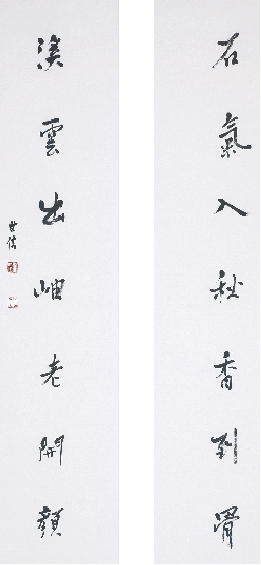 石氣入秋香到骨
溪雲出岫老開顏
世儁